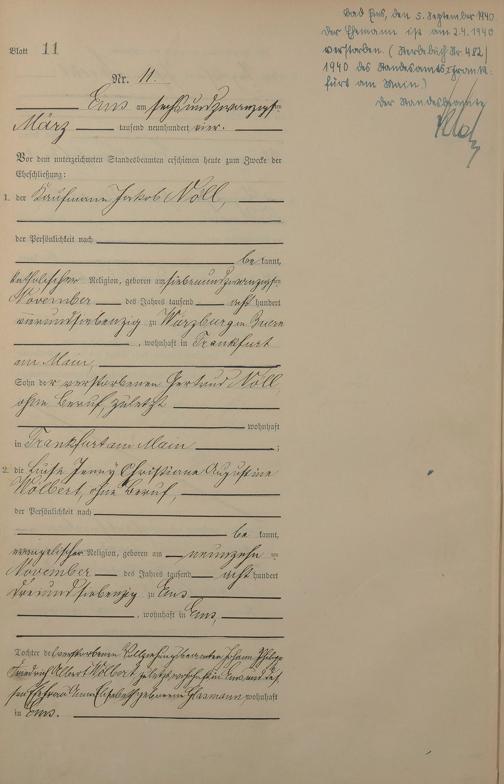 Blatt 11
Bad Ems, den 5. September 1940
Der Ehemann ist am 2.4.1940
verstorben. (Sterbebuch Nr 482/
1940 des Standesamts Frank
furt am Main.)
Der Standesbeamte
Nr. 11.
Ems am sechsundzwanzigsten
März tausend neunhundert vier.
Vor dem unterzeichneten Standesbeamten erschienen heute zum Zwecke der
Eheschließung:
1. der Kaufmann Jakob Nöll,
der Persönlichkeit nach
be kannt,
katholischer Religion, geboren am siebenundzwanzigsten
November des Jahres tausend acht hundert
vierundsiebenzig zu Würzburg in
, wohnhaft in Frankfurt
am Main,
Sohn der verstorbenen Gertrud Nöll,
ohne Beruf, zuletzt
wohnhaft
in Frankfurt am Main ;
2. die Luise Jenny Christiane Augustine
Wolbert, ohne Beruf,
der Persönlichkeit nach
be kannt,
evangelischer Religion, geboren am neunzehn ten
November des Jahres tausend acht hundert
dreiundsiebenzig zu Ems
, wohnhaft in Ems,
Tochter des verstorbenen Vollziehungsbeamten Johann Philipp
Friedrich Albert Wolbert, zuletzt wohnhaft in Ems und der
Ehefrau Anna Elisabeth geborene Glasmann wohnhaft
in Ems.